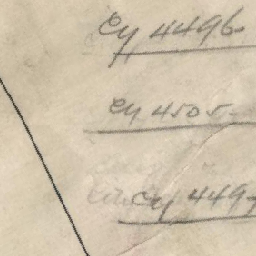 Cy 4496
Cy 4505
Cy 4497